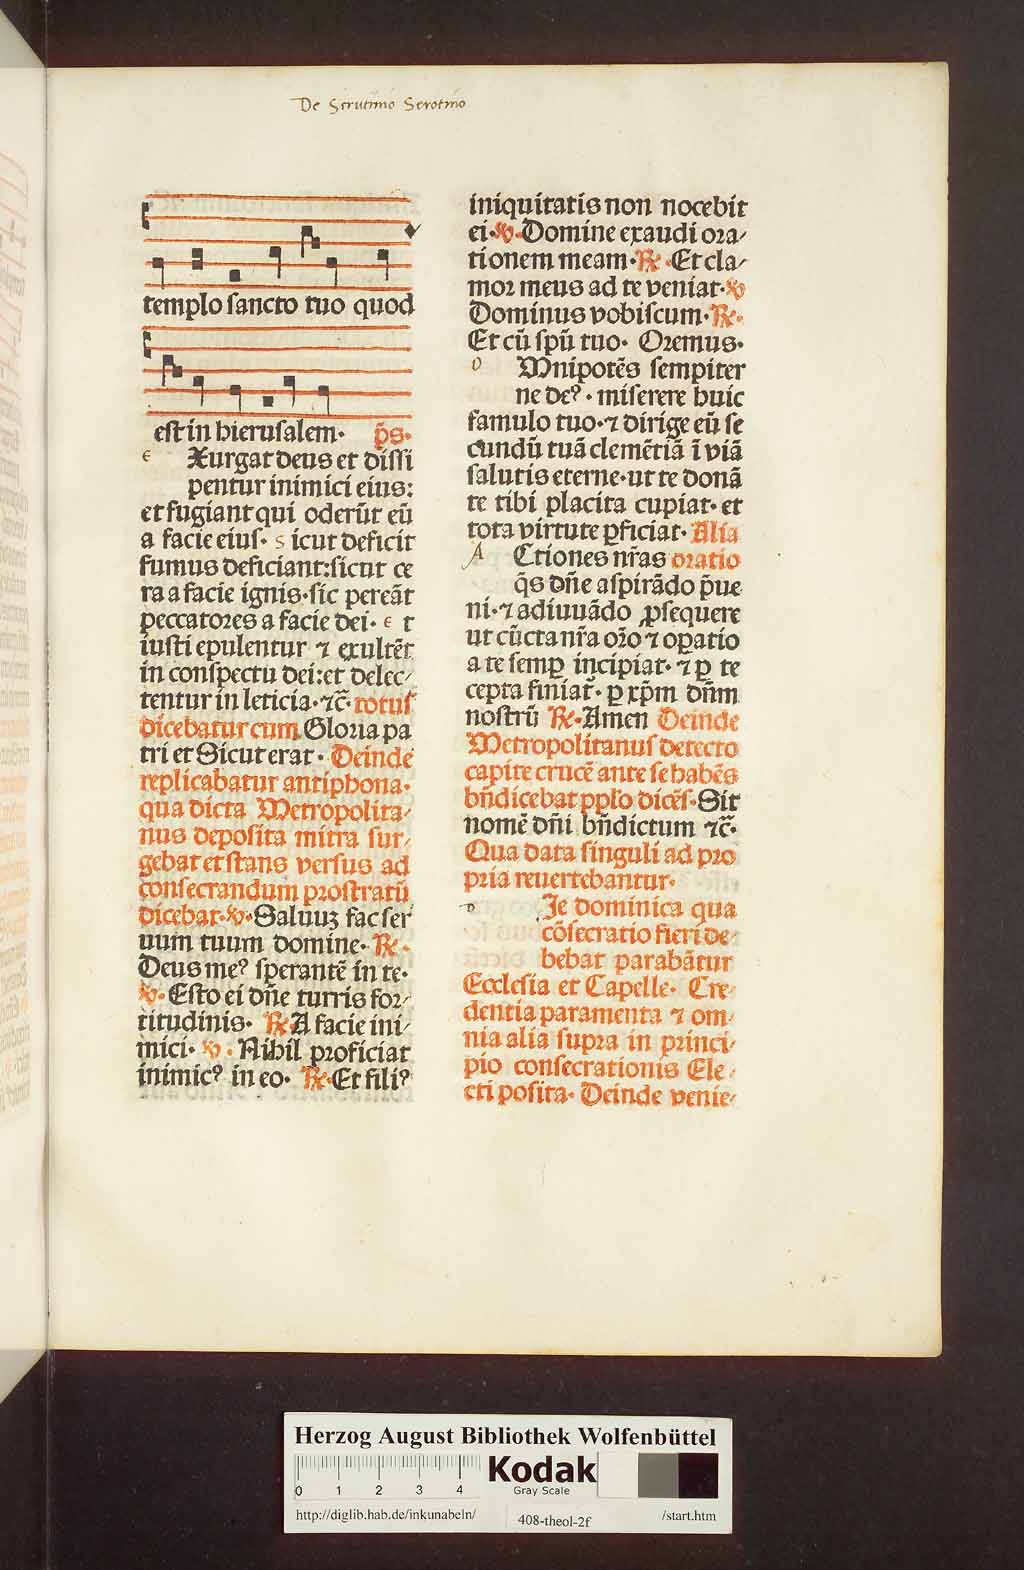 De Scrutinio Serotino
templo sancto tuo quod
est in hierusalem· p̄s·
e Xurgat deus et dissi
pentur inimici eius:
et fugiant qui oderūt eū
a facie eius· s icut deficit
fumus deficiant:sicut ce
ra a facie ignis·sic pereāt
peccatores a facie dei· e t
iusti epulentur ⁊ exultēt
in conspectu dei:et delec-
tentur in leticia·⁊c̄· totus
dicebatur cum Gloria pa
tri et Sicut erat· Deinde
replicabatur antiphona·
qua dicta Metropolita-
nus deposita mitra sur-
gebat et stans versus ad
consecrandum prostratū
dicebat·℣·Saluuꝫ fac ser
uum tuum domine· ℟·
Deus meꝰ sperantē in te·
℣·Esto ei dn̄e turris for-
titudinis· ℟ A facie ini-
mici· ℣· Nihil proficiat
inimicꝰ in eo· ℟·Et filiꝰ
iniquitatis non nocebit
ei·℣·Domine exaudi ora-
tionem meam·℟·Et cla-
mor meus ad te veniat·℣
Dominus vobiscum·℟·
Et cū spū tuo· Oremus·
o Mnipotēs sempiter
ne deꝰ· miserere huic
famulo tuo·⁊ dirige eū se
cundū tuā clemētiā ī viā
salutis eterne·ut te donā
te tibi placita cupiat· et
tota virtute ꝑficiat· Alia
A Ctiones nr̄as oratio
q̄s dn̄e aspirādo p̄ue
ni·⁊ adiuuādo ꝓsequere
ut cūcta nr̄a or̄o ⁊ oꝑatio
a te semꝑ incipiat·⁊ ꝑ te
cepta finiat̄· ꝑ xp̄m dn̄m
nostrū ℟·Amen Deinde
Metropolitanus detecto
capite crucē ante se habēs
bn̄dicebat pplo dicēs·Sit
nomē dn̄i bn̄dictum ⁊c̄·
Qua data singuli ad pro
pria reuertebantur·
D Ie dominica qua
cōsecratio fieri de-
bebat parabātur
Ecclesia et Capelle· Cre-
dentia paramenta ⁊ om-
nia alia supra in princi-
pio consecrationis Ele-
cti posita· Deinde venie-
Herzog August Bibliothek Wolfenbüttel
0 1 2 3 4
Kodak
Gray Scale
http://diglib.hab.de/inkunabeln/ 408-theol-2f /start.htm